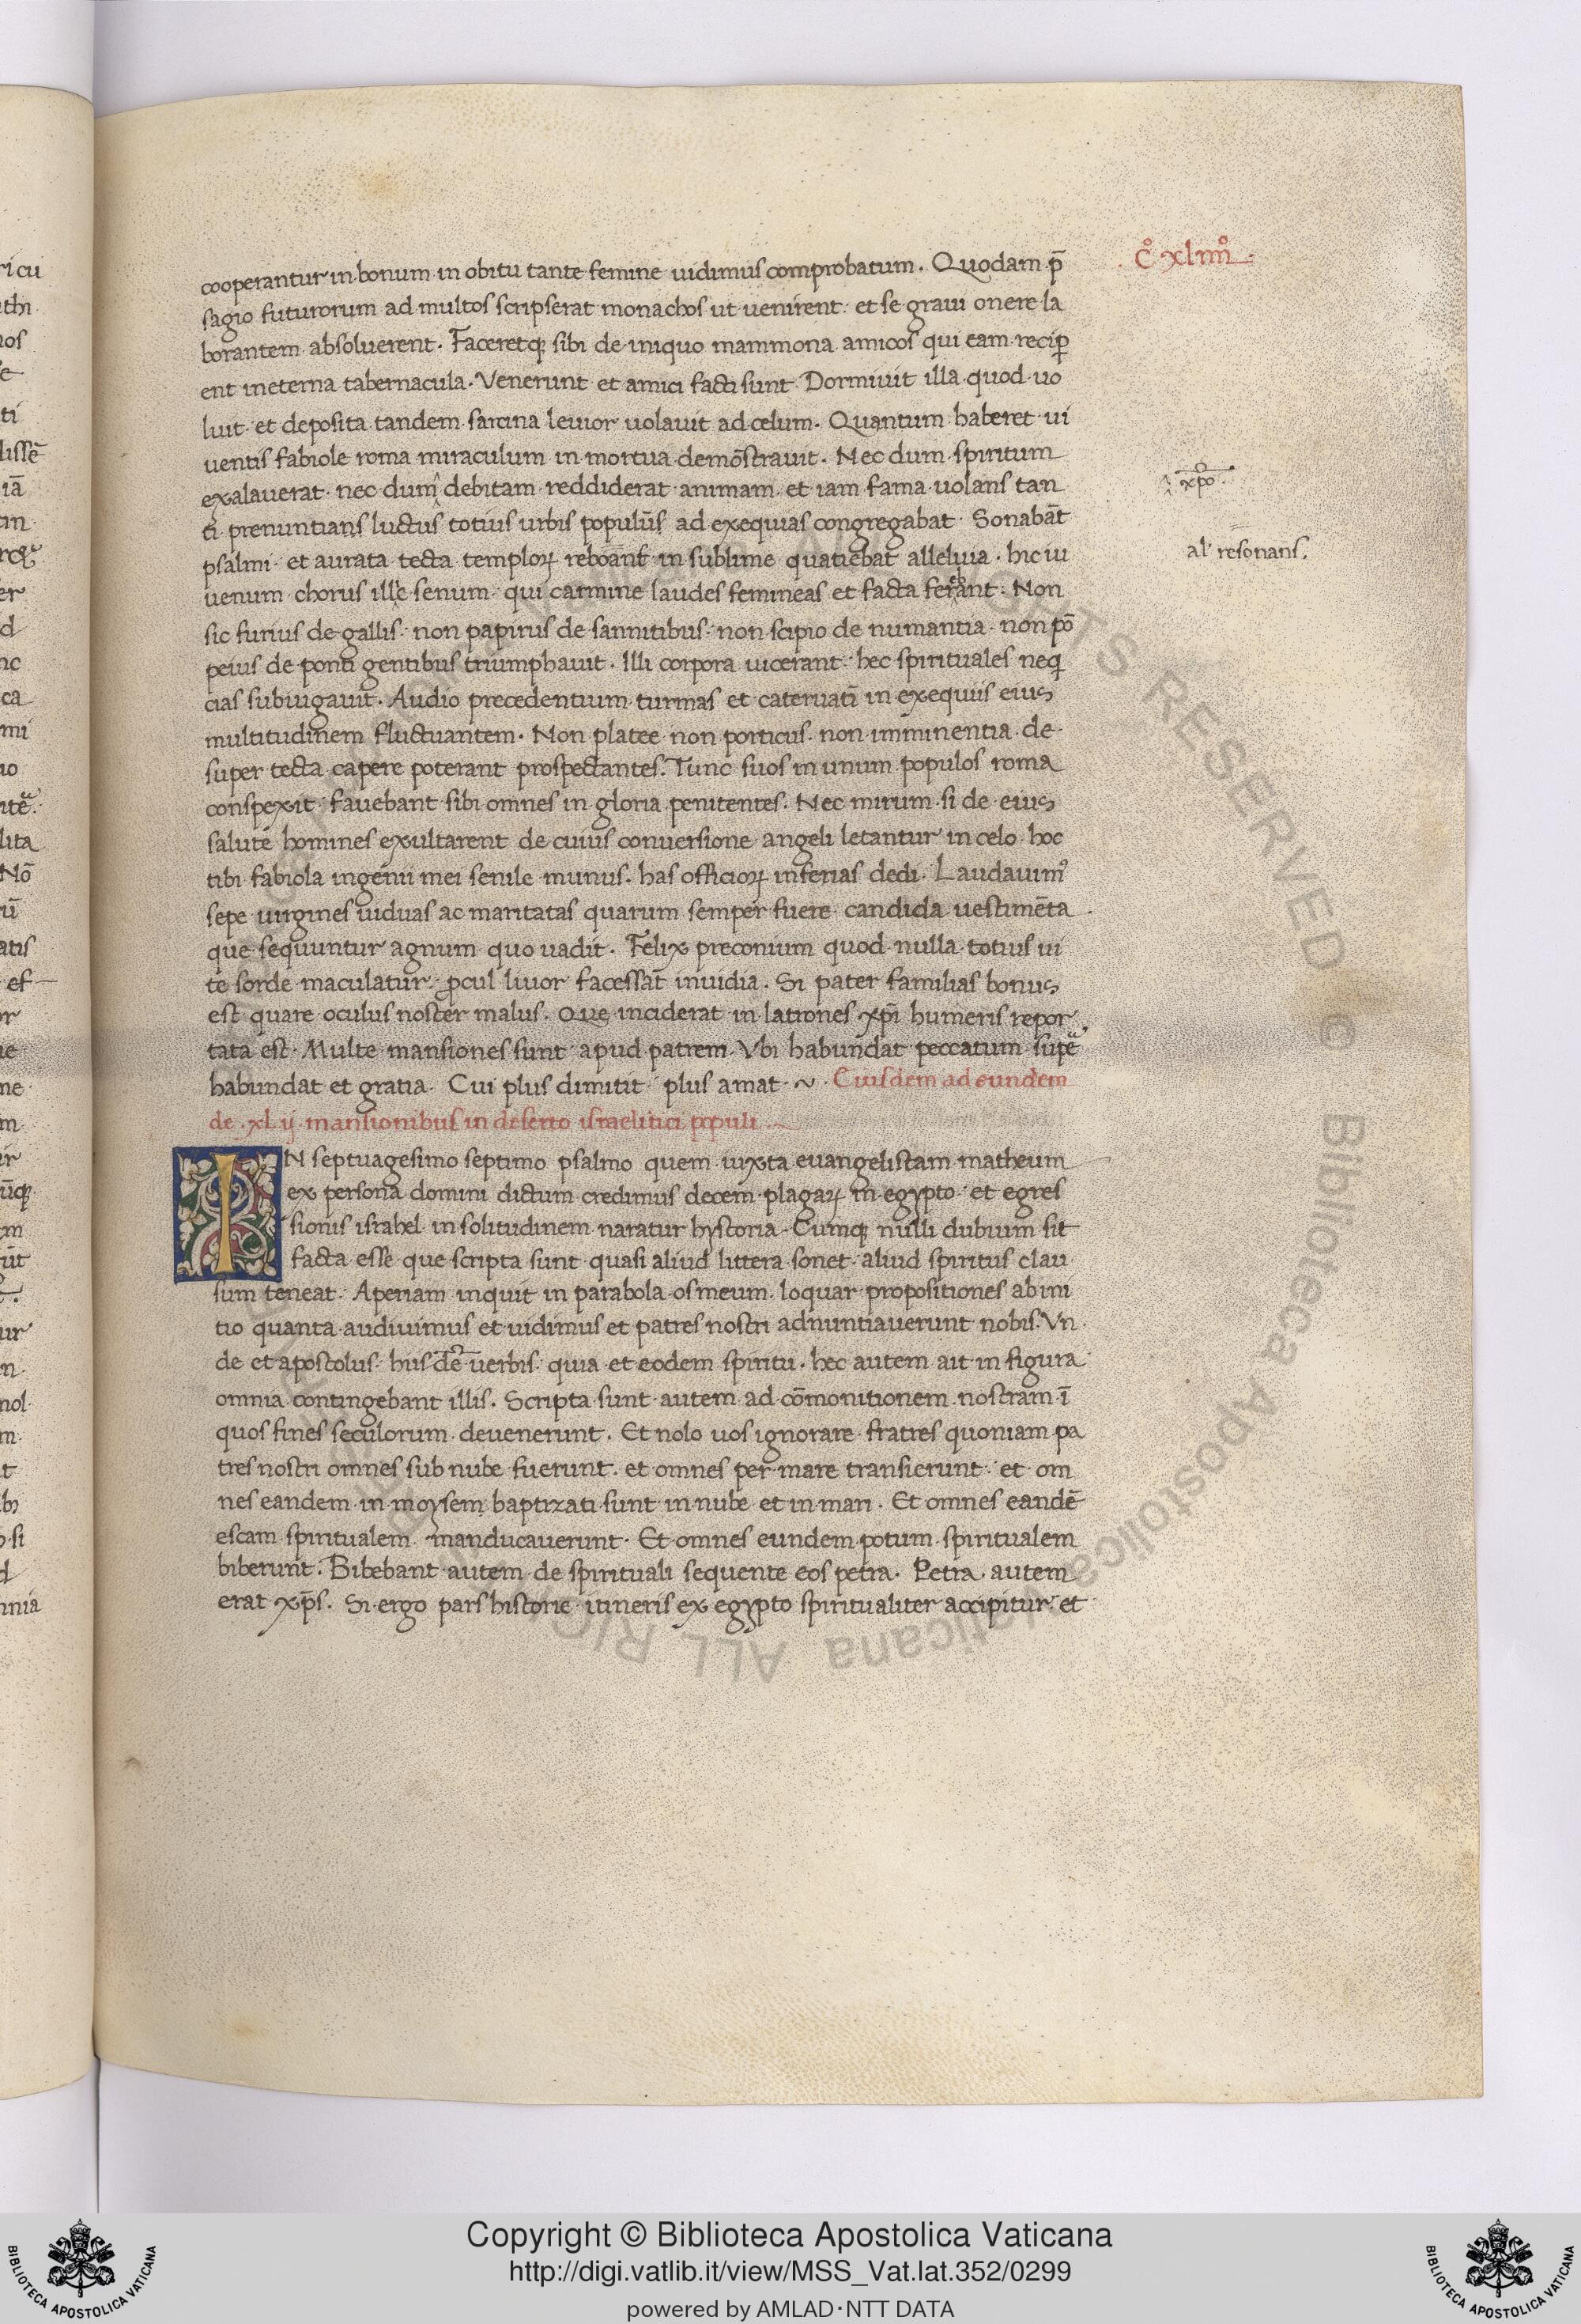 c̊ xlıııı̊
cooperantur in bonum in obitu tante femine uidimus comprobatum. Quodam p̄
sagio futurorum ad multos scripserat monachos ut uenirent et se graui onere la
borantem absoluerent. Faceretqꝫ sibi de iniquo mammona amicos qui eam recip̱
ent in eterna tabernacula. Venerunt et amici facti sunt Dormiuit illa quod uo
luit et deposita tandem sarcina leuior uolauit ad celum. Quantum haberet ui
uentis fabiole roma miraculum in mortua demōstrauit. Nec dum spiritum
exalauerat nec dum debitam reddiderat animam et iam fama uolans tan
xp̄o.
ti prenuntians luctus totius urbis populus ad exequias congregabat Sonabāt
psalmi et aurata tecta temploꝝ reboant in sublime quatiebat alleluia. hic iu
al' resonans.
uenum chorus ille senum qui carmine laudes femineas et facta ferant Non
sic furius de gallis non papirus de samnitibus non scipio de numantia non pō
peius de ponti gentibus triumphauit. Illi corpora uicerant hec spirituales neq
cias subiugauit. Audio precedentium turmas et cateruati in exequiis eius
multitudinem fluctuantem. Non platee non porticus non imminentia de
super tecta capere poterant prospectantes. Tunc suos in unum populos roma
conspexit fauebant sibi omnes in gloria penitentes. Nec mirum si de eius
salute homines exultarent de cuius conuersione angeli letantur in celo hoc
tibi fabiola ingenii mei senile munus. has officioꝝ inferias dedi. Laudauimꝰ
sepe uirgines uiduas ac maritatas quarum semper fuere candida uestimēta
que sequuntur agnum quo uadit. Felix preconium quod nulla totius ui
te sorde maculatur. ꝓcul liuor facessat inuidia. Si pater familias bonus
est quare oculus noster malus. Que inciderat in latrones xp̄i humeris repor
tata est. Multe mansiones sunt apud patrem. Vbi habundat peccatum supe
habundat et gratia. Cui plus dimitit plus amat ~. Eiusdem ad eundem
de .xl ij mansionibus in deserto israelitici populi.
IN septuagesimo septimo psalmo quem iuxta euangelistam matheum
ex persona domini dictum credimus decem plagaꝝ in egypto et egres
sionis israhel in solitudinem naratur hystoria. Cumqꝫ nulli dubium sit
facta esse que scripta sunt quasi aliud littera sonet aliud spiritus clau
sum teneat. Aperiam inquit in parabola os meum. loquar propositiones ab ini
tio quanta audiuimus et uidimus et patres nostri adnuntiauerunt nobis. Vn
de et apostolus hus de uerbis quia et eodem spiritu. hec autem ait in figura
omnia contingebant illis. Scripta sunt autem ad cōmonitionem nostram ī
quos fines seculorum deuenerunt. Et nolo uos ignorare fratres quoniam pa
tres nostri omnes sub nube fuerunt. et omnes per mare transierunt et om
nes eandem in moysem baptizati sunt in nube et in mari. Et omnes eandē
escam spiritualem manducauerunt. Et omnes eundem potum spiritualem
biberunt. Bibebant autem de spirituali sequente eos petra. Petra autem
erat xp̄s. Si ergo pars historie itineris ex egypto spiritualiter accipitur et
Copyright © Biblioteca Apostolica Vaticana
http://digi.vatlib.it/view/MSS_Vat.lat.352/0299
powered by AMLAD・NTT DATA